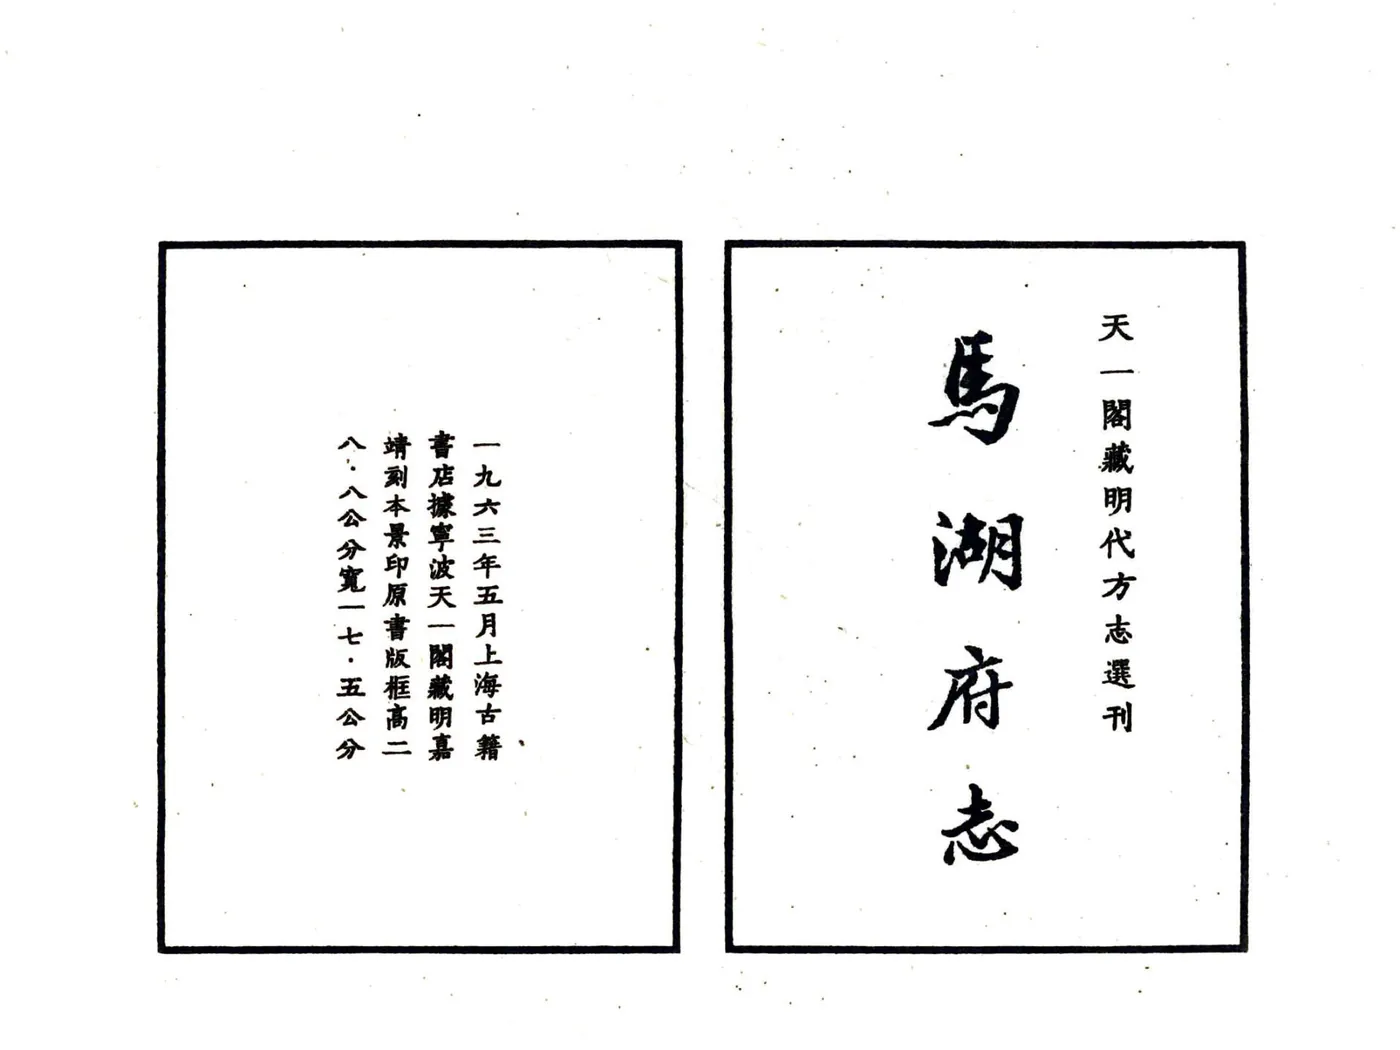 天一閣藏明代方志選刊
馬湖府志
一九六三年五月上海古籍
書店據寧波天一閣藏明嘉
靖刻本景印原書版框高二
八·八公分寬一七·五公分